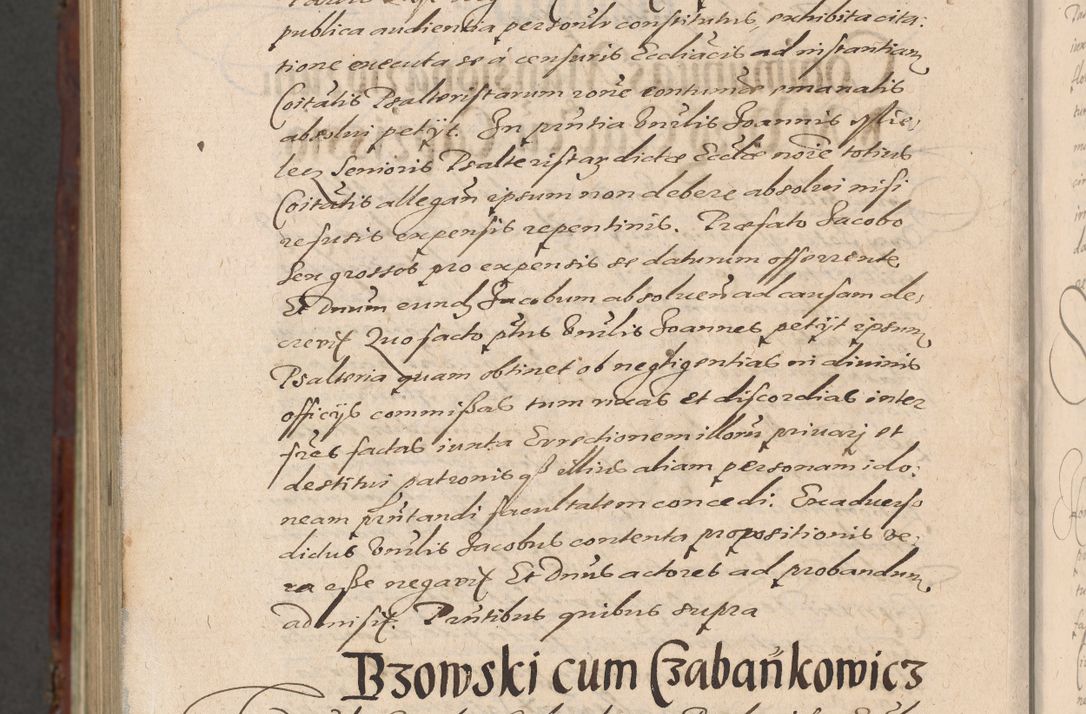 publica audientia personlr constitutus, exhibita cita:
tione executa se á censuris Eccliãcis ad instantiam
Coitãtis Psalteristarum rõne contumãe emanatis
absolui petijt. In prñtia Vnrlis Joannis
Senioris Psalteristar dictæ Ecclæ noĩe totius
Coitãtis allegañ ipsum non debere absolui nisi
refusis expensis repentinis. Præfato Jacobo
Sex grossos pro expensis se daturum offerrente
Et Dnum eundz Jacobum absolueñ ad causam de,
crevit Quo facto ptus Vnrlis Joannes petijt ipsum
Psalteria quam obtinet ob negligentias in diuinis
officijs commissas tum rixas et discordias inter
frẽs factas iuxta Errectionem illorũ priuarj et
destitui patronis illius aliam personam ido:
neam prñtandi facultatem concedi. Exaduerso
dictus Vnrlis Jacobus contenta propositionis ve:
ra esse negavit Et Dnus actores ad probandum
admisit. Prñtibus quibus supra
Bzowski cum Czabańkowicz